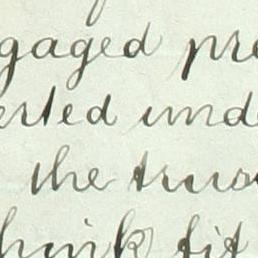 gaged pre
erted unde
the trus
think fit